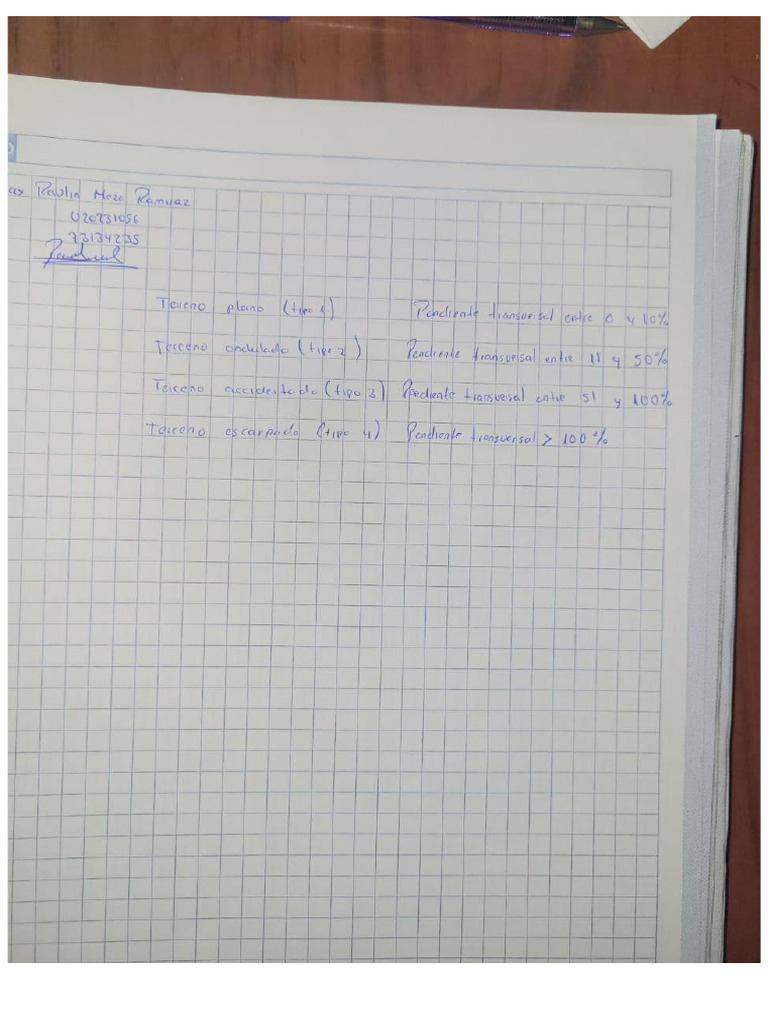 ax Paulin Meza Ramirez
020231056
73134235
Terreno plano (tipo 1) Pendiente transversal entre 0 y 10%
Terreno ondulado (tipo 2) Pendiente transversal entre 11 y 50%
Terreno accidentado (tipo 3) Pendiente transversal entre 51 y 100%
Terreno escarpado (tipo 4) Pendiente transversal > 100%